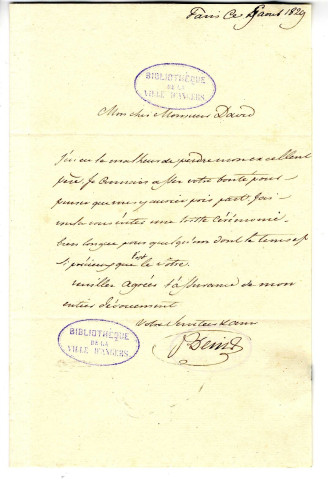 Paris Ce 5 aout 1829
BIBLIOTHÈQUE
DE LA
VILLE D'ANGERS
Mon cher Monsieur David
J'ai eu le malheur de perdre mon excellent
père. Je Connais assez votre bonté pour
penser que vous y auriez pris part. J'ai
voulu vous éviter une triste Cérémonie
bien longue pour quelqu'un dont le tems est
si précieux que l'est le votre.
veuillez agréer l'assurance de mon
entier dévouement
Votre Serviteur &amp; ami
BIBLIOTHÈQUE
DE LA
VILLE D'ANGERS